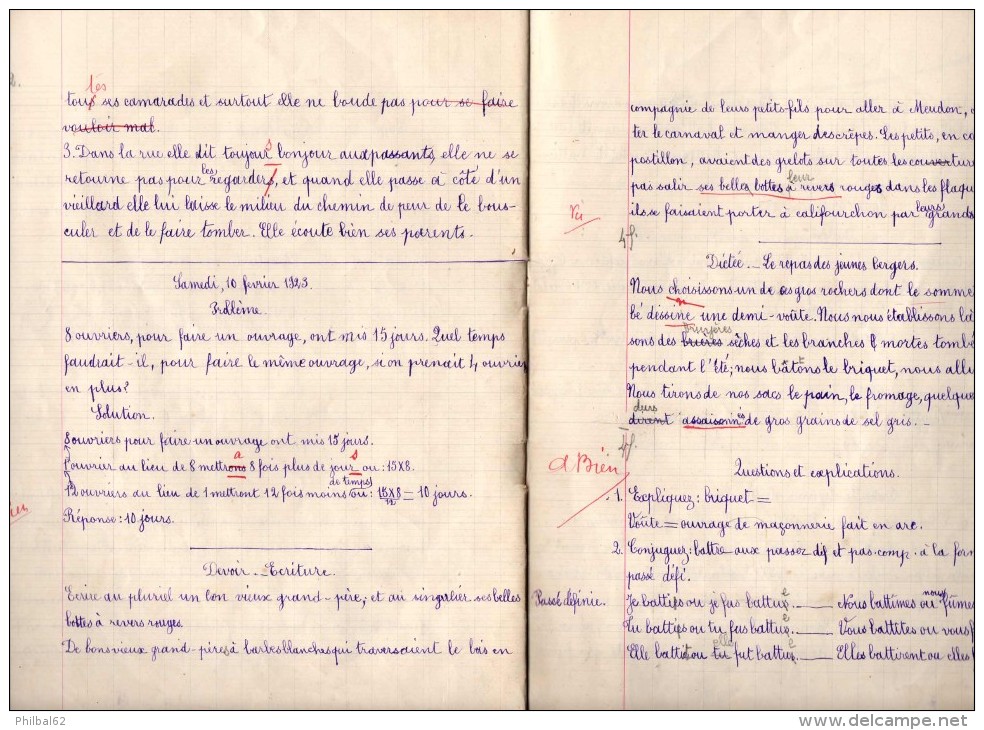 tous ses camarades et surtout elle ne boude pas pour se faire
vouloir mal.
3. Dans la rue elle dit toujours bonjour aux passants, elle ne se
retourne pas pour les regarder, et quand elle passe à côté d'un
vieillard elle lui laisse le milieu du chemin de peur de le bous-
culer et de le faire tomber. Elle écoute bien ses parents.
Samedi, 10 février 1923.
Problème.
8 ouvriers, pour faire un ouvrage, ont mis 15 jours. Quel temps
faudrait-il, pour faire le même ouvrage, si on prenait 4 ouvriers
en plus?
Solution.
8 ouvriers pour faire un ouvrage ont mis 15 jours.
1 ouvrier au lieu de 8 mettra 8 fois plus de jours ou : 15 X 8.
12 ouvriers au lieu de 1 mettront 12 fois moins de temps ou : 15 X 8 / 12 = 10 jours.
Réponse : 10 jours.
Devoir. _ Ecriture.
Ecrire au pluriel un bon vieux grand-père; et au singulier ses belles
bottes à revers rouges.
De bons vieux grand-pères à barbes blanches qui traversaient le bois en
compagnie de leurs petits-fils pour aller à Meudon,
ter le carnaval et manger des crêpes. Les petits, en co
postillon, avaient des grelots sur toutes les coutur
pas salir ses belles bottes à revers rouges dans les flaqu
leur
ils se faisaient porter à califourchon par leurs grands
Vu
4f.
Dictée. _ Le repas des jeunes bergers.
Nous choisissons un de ces gros rochers dont le somme
bé dessine une demi-voûte. Nous nous établissons là
sons des bruyères sèches et les branches mortes tombé
pendant l'été; nous bâtons le briquet, nous allu
Nous tirons de nos sacs le pain, le fromage, quelque
durs assaisonnés de gros grains de sel gris. _
4f.
a Bien
Questions et explications.
1. Expliquez : briquet =
Voûte = ouvrage de maçonnerie fait en arc.
2. Conjuguez : battre aux passez dif et pas. comp. à la form
passé défi.
Passé définie. Je battis ou je fus battue. ___ Nous battîmes ou nous fûmes
Tu battis ou tu fus battue. ___ Vous battîtes ou vous f
Elle battit ou elle fut battue. ___ Elles battirent ou elles
Philbal62
www.delcampe.net